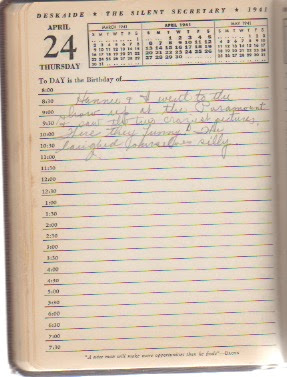 DESKAIDE ★ THE SILENT SECRETARY ★ 1941
APRIL
24
THURSDAY
MARCH 1941
S M T W T F S
APRIL 1941
S M T W T F S
1 2 3 4 5
6 7 8 9 10 11 12
13 14 15 16 17 18 19
20 21 22 23 24 25 26
27 28 29 30
MAY 1941
S M T W T F S
To DAY is the Birthday of
8:00
8:30 & I went to the
9:00 show up at the Paramount
9:30 saw the two craziest pictures,
10:00 they funny
10:30 laughed ourselves silly
11:00
11:30
12:00
12:30
1:00
1:30
2:00
2:30
3:00
3:30
4:00
4:30
5:00
5:30
6:00
6:30
7:00
7:30
"A wise man will make more opportunities than he finds" —Bacon